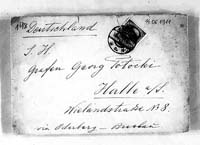 Deutschland
S. H.
Grafen Georg Totocki
Halle a/S.
Wielandstraße N 8.
via Oderberg – Breslau